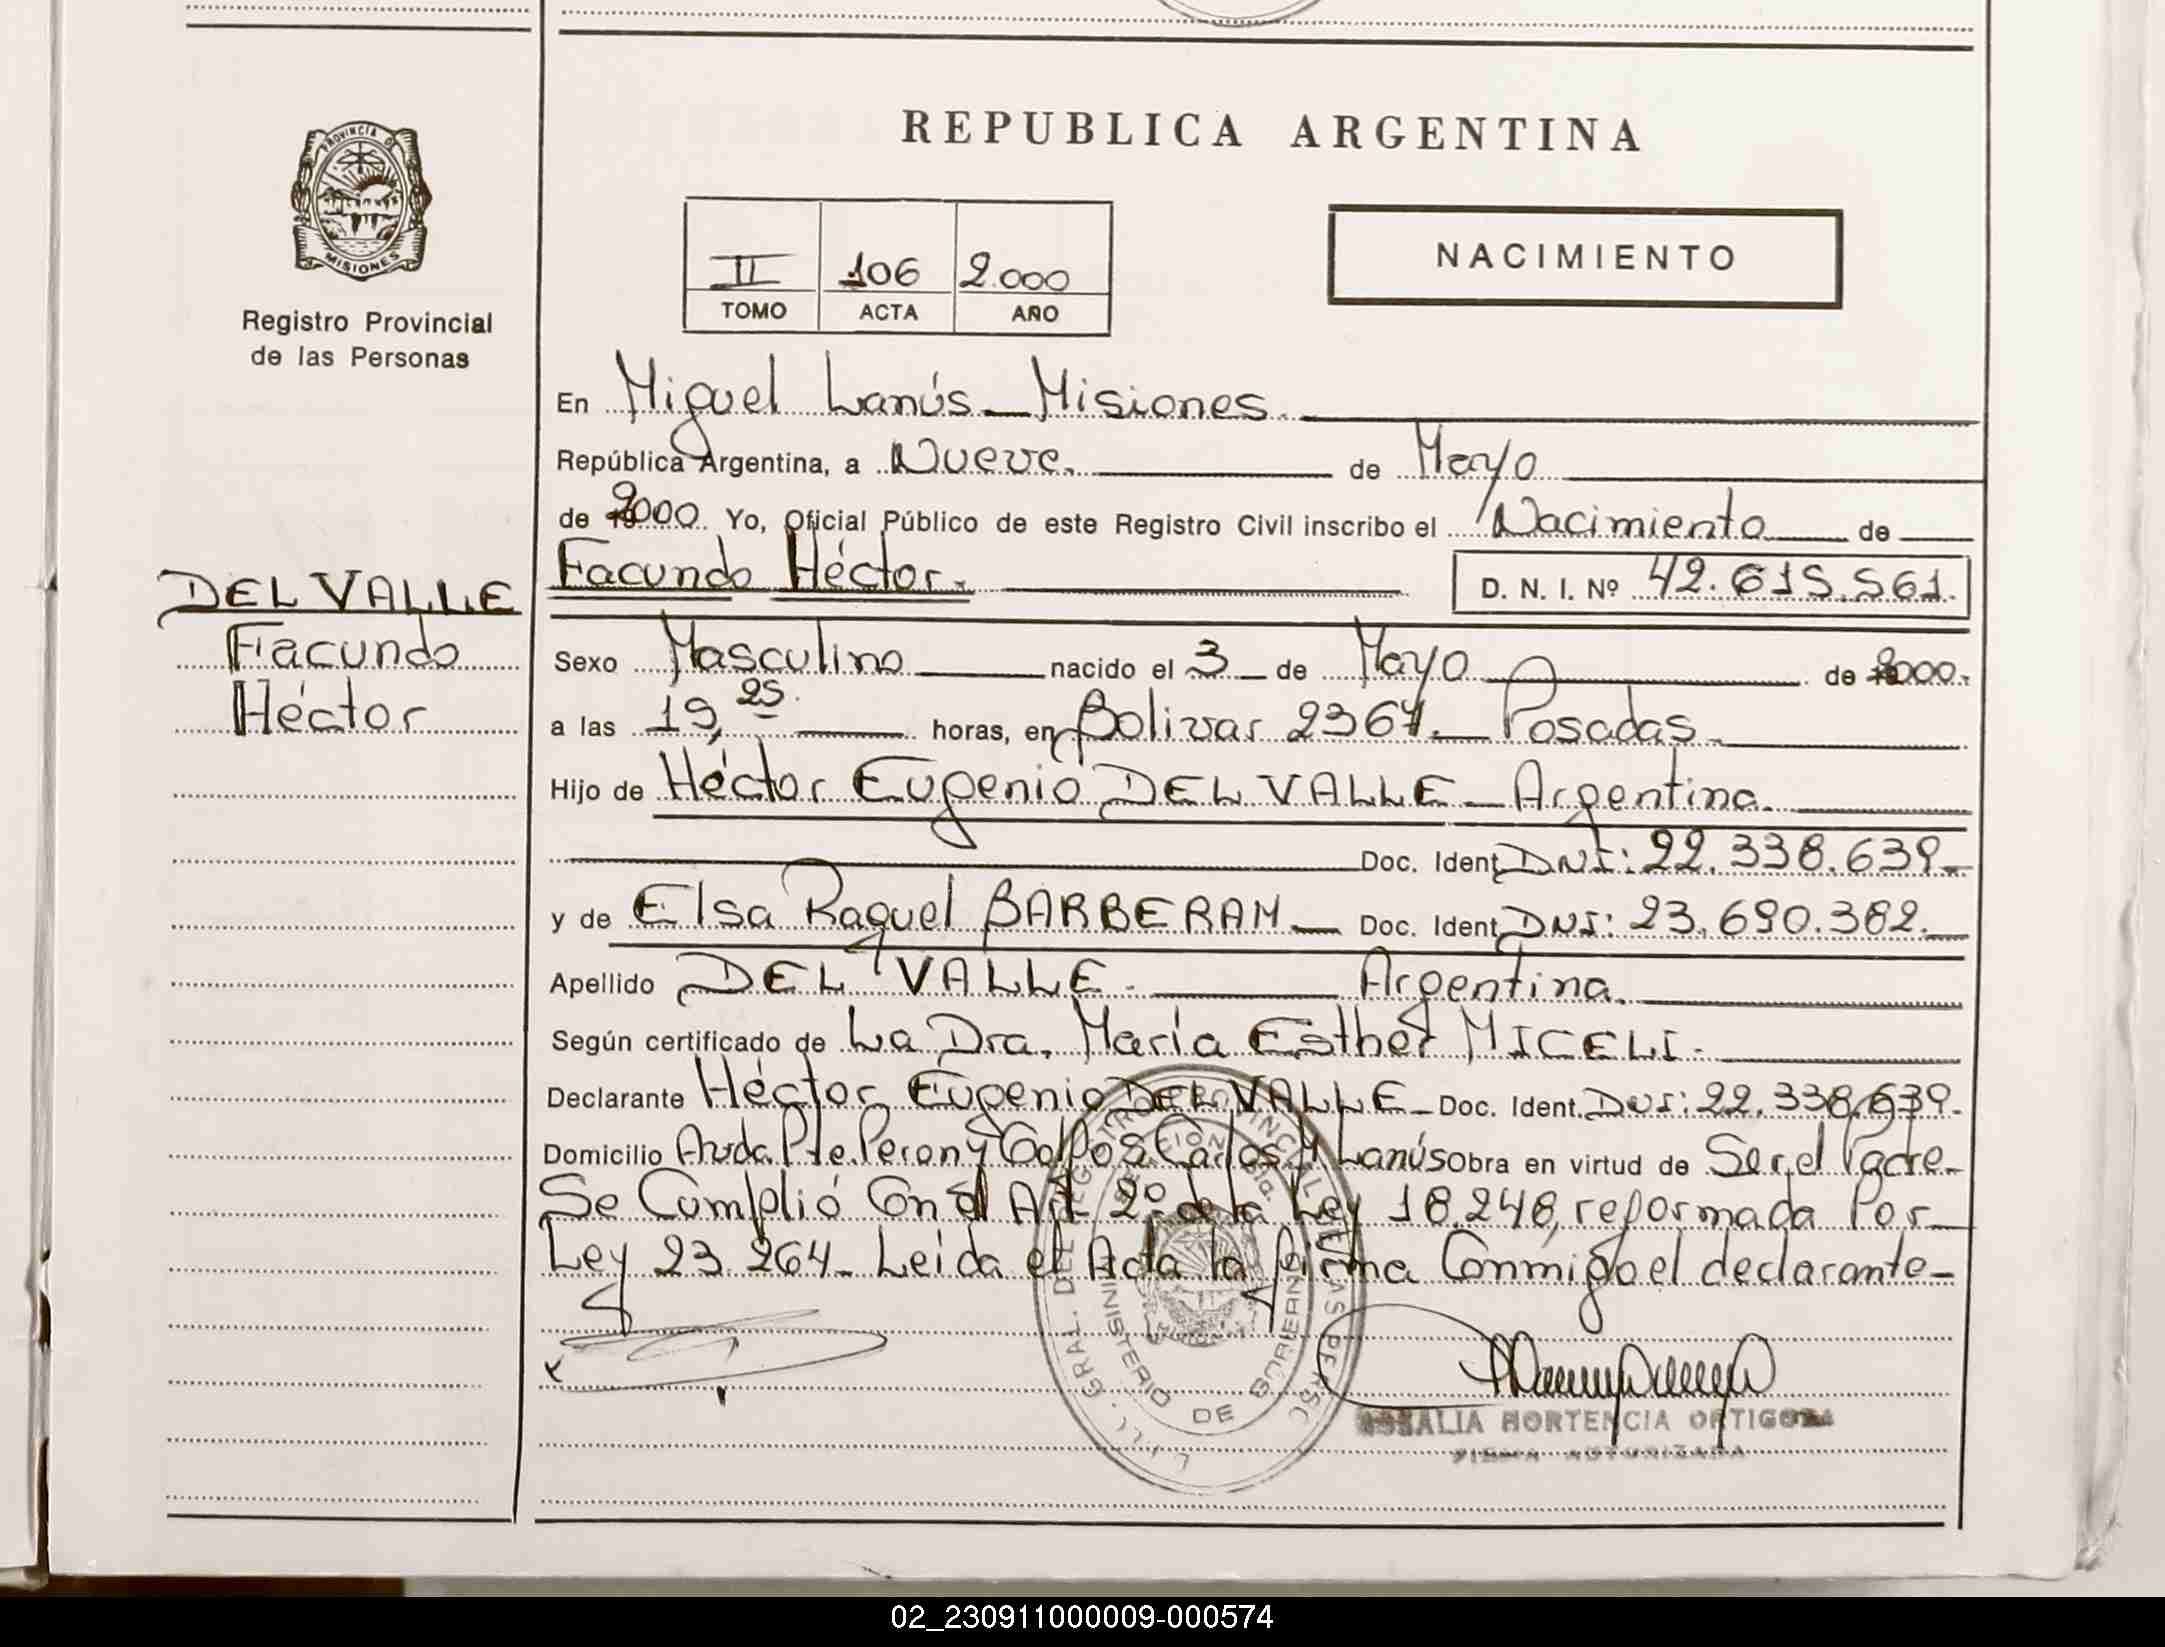 REPUBLICA ARGENTINA
PROVINCIA DE
MISIONES
Registro Provincial
de las Personas
II 106 2.000
TOMO ACTA AÑO
NACIMIENTO
En Miguel Lanús - Misiones.
República Argentina, a Nueve. de Mayo
de 2000 Yo, Oficial Público de este Registro Civil inscribo el Nacimiento de
Facundo Héctor. D. N. I. Nº 42.615.561.
DEL VALLE
Facundo
Héctor
Sexo Masculino nacido el 3 de Mayo de 2000.
a las 19,25 horas, en Bolivar 2367. Posadas.
Hijo de Héctor Eugenio DEL VALLE - Argentina.
Doc. Ident. DNI: 22.338.639.
y de Elsa Raquel BARBERAN Doc. Ident. DNI: 23.690.382.
Apellido DEL VALLE. Argentina.
Según certificado de La Dra. María Esther MICELI.
Declarante Héctor Eugenio DEL VALLE - Doc. Ident. DNI: 22.338.639.
Domicilio Avda. Pte. Peron y Carlos M Lanús obra en virtud de Ser el Padre.
Se Cumplió Con el Art 2º de la Ley 18.248, reformada Por
Ley 23.264 - Leida el Acta la firma Conmigo el declarante -
MINISTERIO DE GOBIERNO
ROSALIA HORTENCIA ORTIGOZA
FIRMA AUTORIZADA
02_230911000009-000574